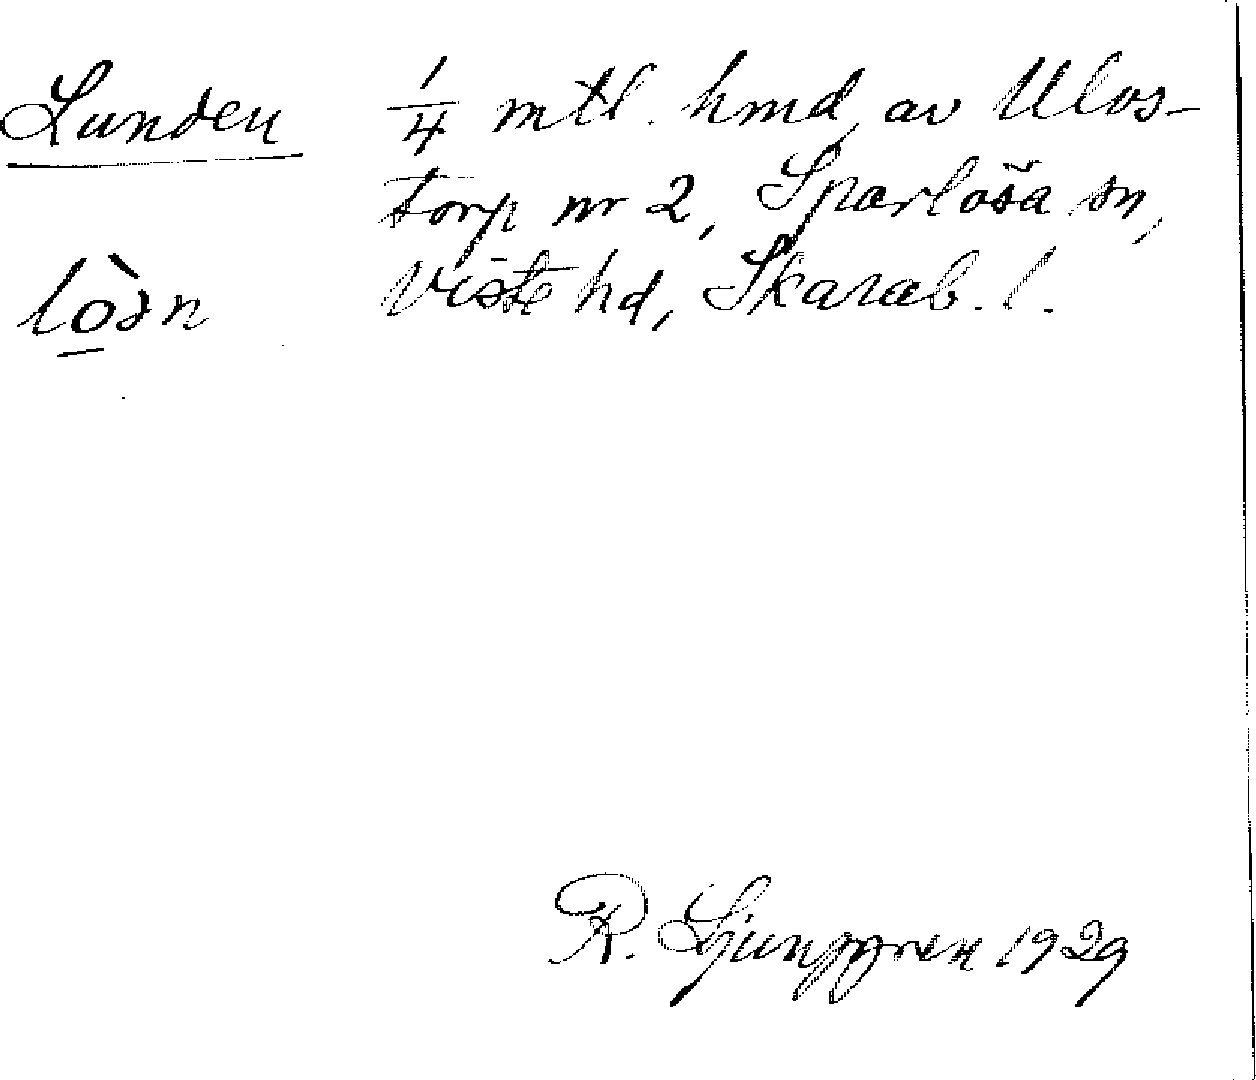 Lunden 1/4 mtl. hmd av Ulos-
torp nr 2, Sparlösa sn,
Viste hd, Skarab. l.
R. Ljunggren 1929